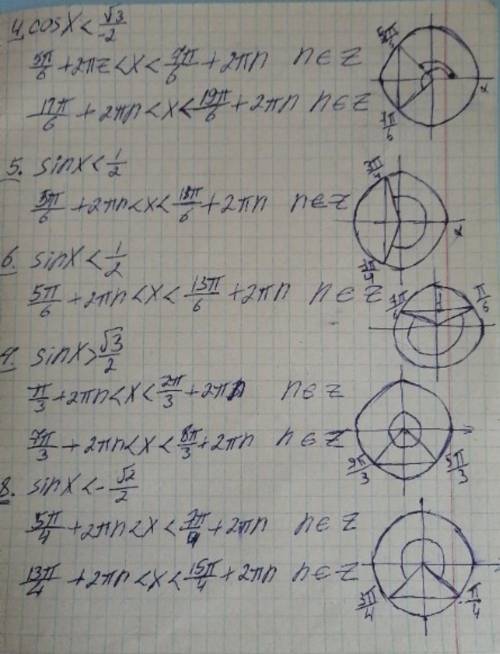 4. cosx < √3/-2
5π/6 + 2πz < x < 7π/6 + 2πn n∈z
17π/6 + 2πn < x < 19π/6 + 2πn n∈z
7π/6
x
5. sinx < 1/2
5π/6 + 2πn < x < 13π/6 + 2πn n∈z
x
6. sinx < 1/2
5π/6 + 2πn < x < 13π/6 + 2πn n∈z
π/6
7. sinx > √3/2
π/3 + 2πn < x < 2π/3 + 2πn n∈z
7π/3 + 2πn < x < 8π/3 + 2πn n∈z
5π/3
8. sinx < -√2/2
5π/4 + 2πn < x < 7π/4 + 2πn n∈z
13π/4 + 2πn < x < 15π/4 + 2πn n∈z
3π/4
-π/4